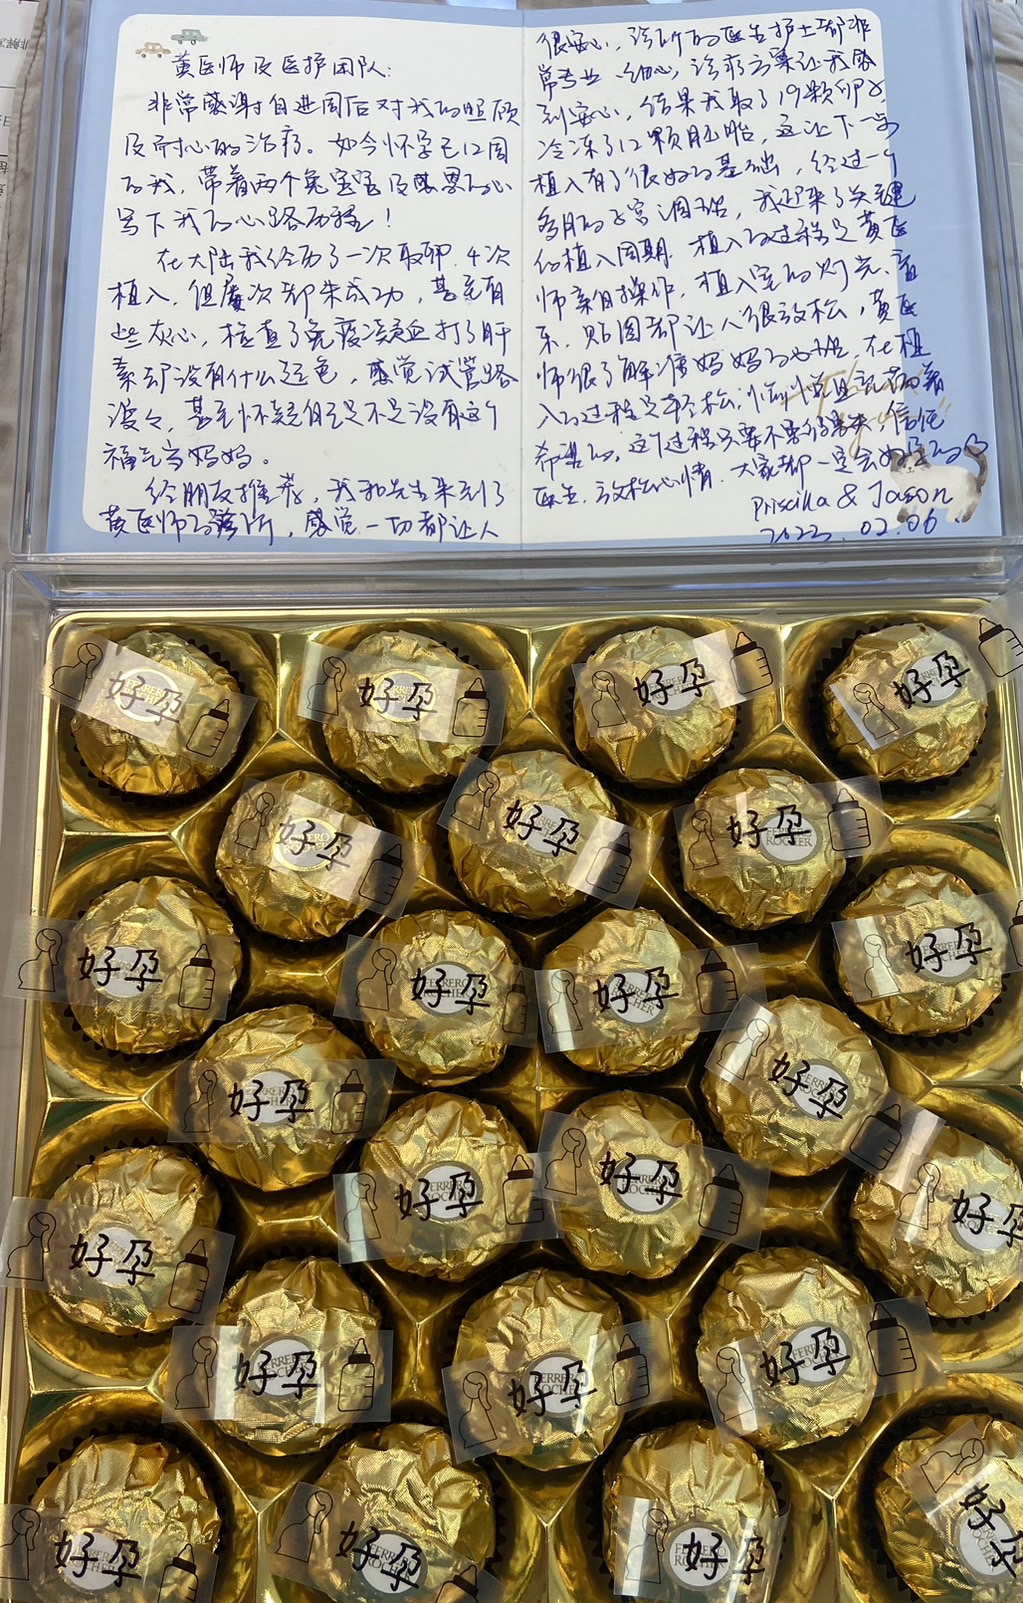 黄医师及医护团队:
非常感谢自进周后对我的照顾
及耐心的治疗。如今怀孕已12周
的我,带着两个兔宝宝及感恩的心
写下我的心路历程!
在大陆我经历了一次取卵,4次
植入,但屡次都未成功,甚至有
些灰心,检查了免疫凝血打了肝
素却没有什么起色,感觉试管路
漫々,甚至怀疑自己是不是没有这个
福气当妈妈。
经朋友推荐,我和先生来到了
黄医师的诊所,感觉一切都让人
很安心,诊所的医生护士都非
常专业、细心,诊疗方案让我感
到安心,结果我取了19颗卵子
冷冻了12颗胚胎,这让下一步
植入有了很好的基础,经过一个
多月的子宫调理,我迎来了关键
的植入周期,植入的过程是黄医
师亲自操作,植入室的灯光、音
乐、贴图都让人很放松,黄医
师很了解准妈妈的心理,在植
入的过程是轻松、愉悦且充满着
希望的,这个过程只要不要多想,信任
医生,放松心情,大家都一定会好孕的♡
Priscilla & Jason
2023.02.06
好孕
FERRERO
好孕
好孕
好孕
好孕
FERRERO
好孕
好孕
FERRERO
ROCHER
好孕
好孕
FERRERO
ROCHER
好孕
FERRERO
ROCHER
好孕
好孕
好孕
FERRERO
ROCHER
好孕
FERRERO
好孕
FERRERO
好孕
好孕
好孕
FERRERO
ROCHER
好孕
FERRERO
ROCHER
好孕
FERRERO
ROCHER
好孕
好孕
好孕
好孕